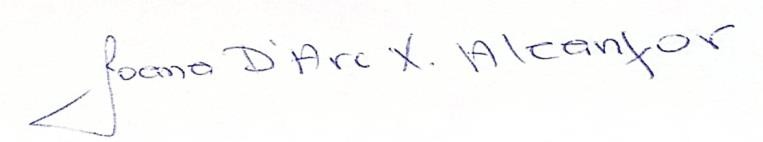 Joana D'Arc X. Alcanfor